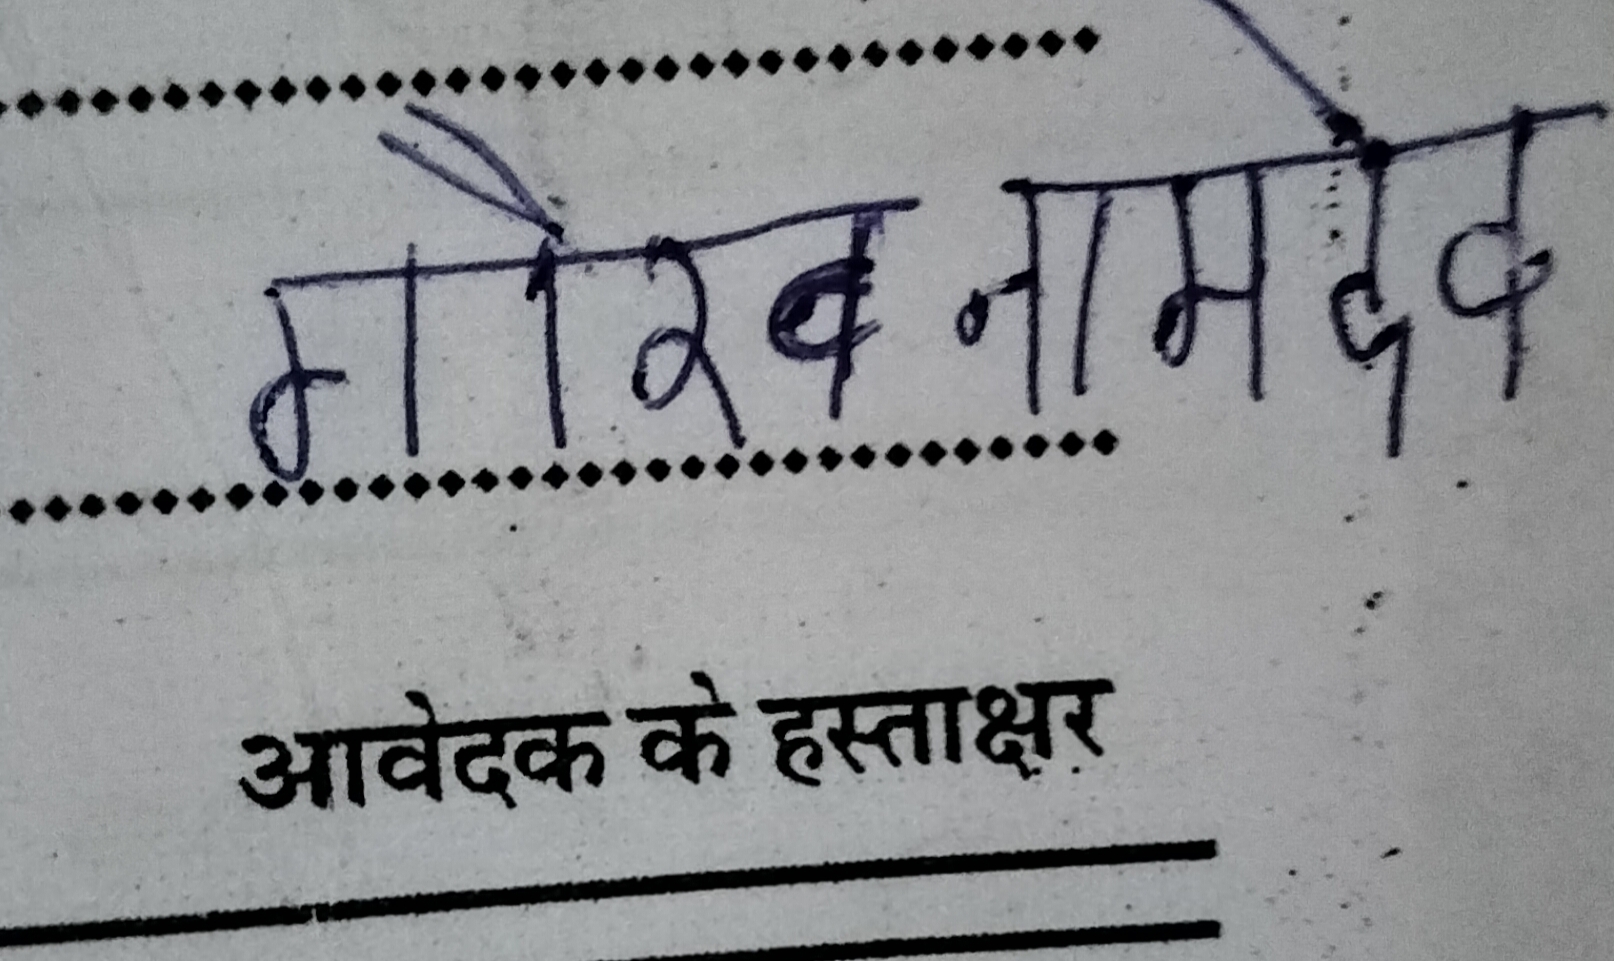 गौरव नामदेव
आवेदक के हस्ताक्षर